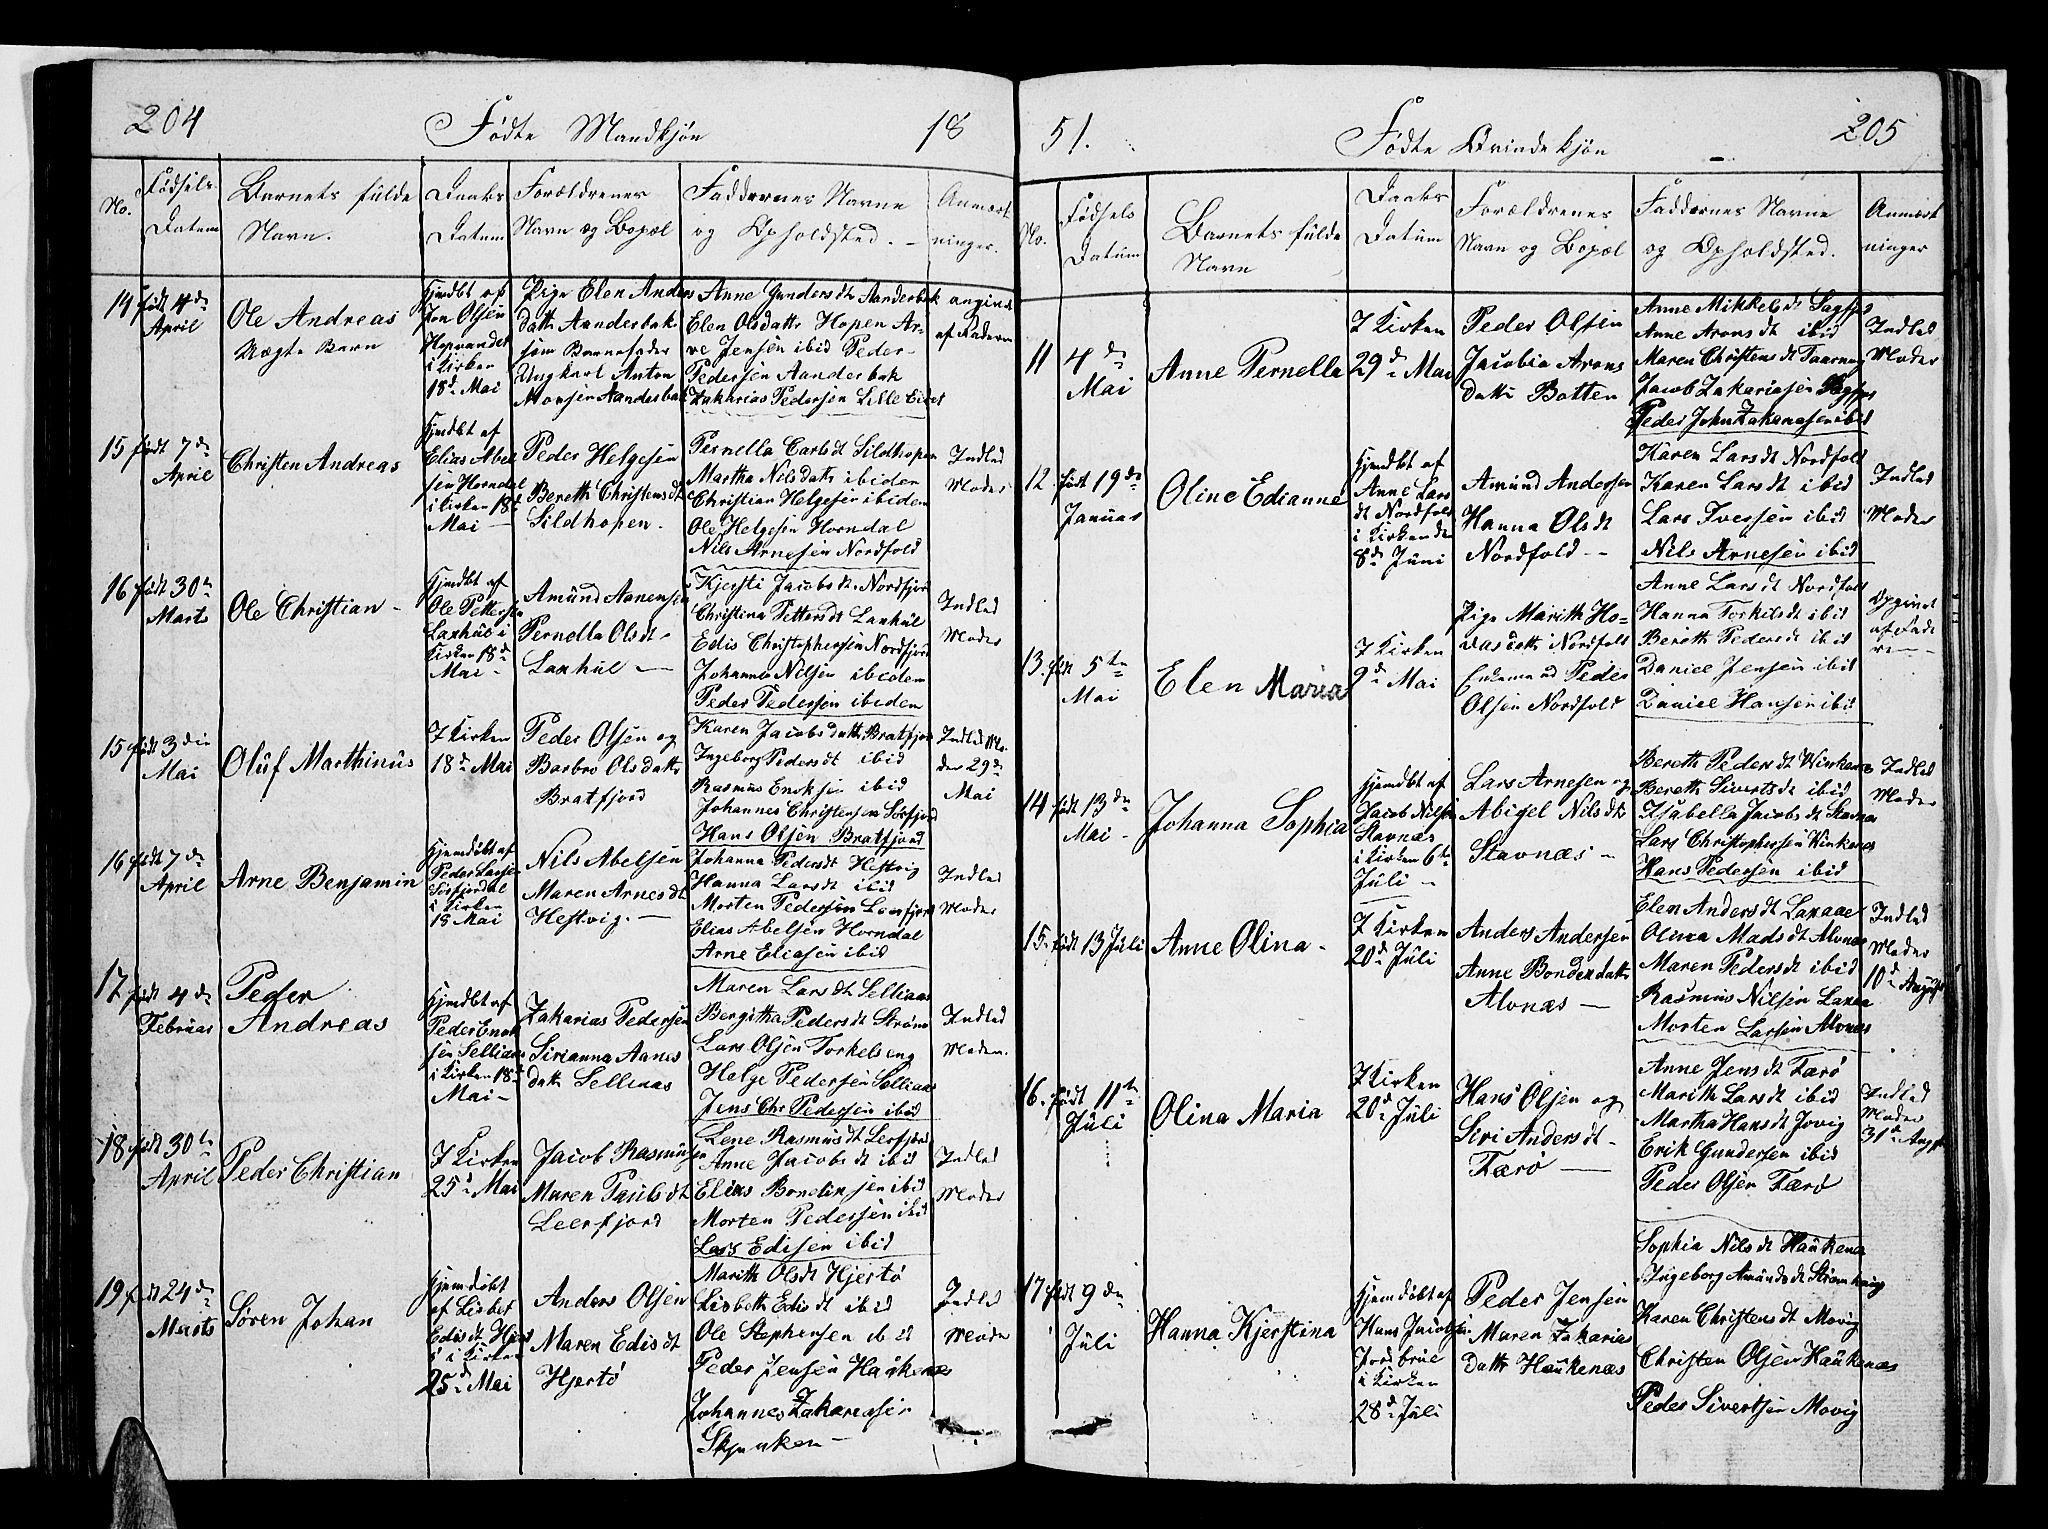 204
Fødte Mandkjøn
18
No.
Fødsels
Datum
Barnets fulde
Navn.
Daabs
Datum
Forældrenes
Navn og Bopæl
Faddernes Navne
og Opholdsted. -
Anmærk
ninger.
14 født 4de
April
Ole Andreas
Uægte Barn
Hjemdbt af
Jon Olsen
Hopvandet
i Kirken
18d Mai
Pige Elen Anders
datter Aanderbak
som Barnefader
Ungkarl Anton
Monsen Aanderbak
Anne Gundersdt Aanderbak
Elen Olsdatter Hopen Ar-
ve Jensen ibid Peder
Pedersen Aanderbak
Zakarias Pedersen Lille Eidet
angivet
af Faderen
15 født 7de
April
Christen Andreas
Hjmdbt af
Elias Abel
sen Horndal
i Kirken 18d
Mai
Peder Helgesen
Bereth Christensdt
Sildhopen.
Pernella Carlsdt Sildhopen
Martha Nilsdatter ibiden
Christian Helgesen ibiden
Ole Helgesen Horndal
Nils Arnesen Nordfold
Indled
Moder
16 født 30te
Marts
Ole Christian -
Hjmdbt af
Ole Pettersen
Laxhul i
Kirken 18de
Mai -
Amund Aanensen
Pernella Olsdt-
Laxhul -
Kjersti Jacobsdt Nordfjord
Christina Pettersdt Laxhul
Edis Christophersen Nordfjord
Johannes Nilsen ibiden
Peder Pedersen ibiden
Indled
Moder
15 født 3die
Mai
Oluf Marthinus
I Kirken
18d Mai
Peder Olsen og
Barbro Olsdatter
Bratfjord
Karen Jacobsdatter Bratfjord
Ingeborg Pedersdt ibid
Rasmus Eriksen ibid
Johannes Christensen Sørfjord
Hans Olsen Bratfjord
Indled Mo
der 29de
Mai
16 født 7de
April
Arne Benjamin
Hjemdøbt af
Peder Larsen
Sørfjordal
i Kirken
18 Mai
Nils Abelsen
Maren Arnesdt
Hestvig. -
Johanna Pedersdt Hestvig
Hanna Larsdt ibid
Morten Pedersen Leerfjord
Elias Abelsen Horndal
Arne Eliasen ibid
Indled
Moder
17 født 4de
Februar
Peder
Andreas
Hjemdbt af
Peder Enok
sen Selliaas
i Kirken 18d
Mai -
Zakarias Pedersen
Sirianna Aanes
datter Selliaas
Maren Larsdt Selliaas
Bergitha Pedersdt Strøm
Lars Olsen Torkelseng
Helge Pedersen Selliaas
Jens Chr Pedersen ibid
Indled
Moder.
18 født 30te
April
Peder Christian
I Kirken
25d Mai
Jacob Rasmussen
Maren Paulsdt
Leerfjord
Lene Rasmusdt Leerfjord
Anne Jacobsdt ibid
Elias Bendixsen ibid
Morten Pedersen ibid
Lars Edisen ibid
Indled
Moder
19 født 24de
Marts
Søren Johan
Hjemdøbt
af Lisbet
Edisdt Hjert
ø i Kirken
25d Mai
Anders Olsen
Maren Edisdt
Hjertø
Marith Olsdt Hjertø
Lisbeth Edisdt ibid
Ole Stephensen ibid
Peder Jensen Haukenæs
Johannes Zakariasen
Skjenken -
Indled
Moder
51.
Fødte Qvindekjøn
205
No.
Fødsels
Datum
Barnets fulde
Navn
Daabs
Datum
Forældrenes
Navn og Bopæl
Faddernes Navne
og Opholdsted.
Anmærk
ninger
11 4de
Mai
Anne Pernella
I Kirken
29d Mai
Peder Olsen
Jacobia Arons
datter Botten
Anne Mikkelsdt Sagfjor
Anne Aronsdt ibid
Maren Christensdt Taarnvig
Jacob Zakariasen Sagfjor
Peder John Zakariasen ibid
Indled
Moder
12 født 19de
Januar
Oline Edianne
Hjemdbt af
Anne Lars
dt Nordfold
i Kirken den
8de Juni
Amund Andersen
Hanna Olsdt
Nordfold -
Karen Larsdt Nordfold
Karen Larsdt ibid
Lars Iversen ibid
Nils Arnesen ibid
Indled
Moder
13. født 5te
Mai
Elen Maria
I Kirken
9d Mai
Pige Marith Ho-
dasdatter i Nordfold
Enkemand Peder
Olsen Nordfold
Anne Larsdt Nordfold
Hanna Torkilsdt ibid
Bereth Pedersdt ibid
Daniel Jensen ibid
Daniel Hansen ibid
Opgivet
af Fade
ren
14 født 13de
Mai -
Johanna Sophia
Hjemdbt af
Jacob Nilsen
Stavnæs
i Kirken 6te
Juli -
Lars Arnesen og
Abigel Nilsdt
Stavnæs -
Bereth Pedersdt Winkenes
Bereth Sivertsdt ibid
Isabella Jacobsdt Stavnæs
Lars Christophersen Winkenes
Hans Pedersen ibid
Indled
Moder
15. født 13 Juli
Anne Olina -
I Kirken
20d Juli
Anders Andersen
Anne Bendixdatter
Alvnæs -
Elen Andersdt Laxaae
Olina Madsdt Alvnæs
Maren Pedersdt ibid
Rasmus Nilsen Laxaa
Morten Larsen Alvnæs
Indled
Moder
10d August
16. født 11te
Juli
Olina Maria
I Kirken
20d Juli
Hans Olsen og
Siri Andersdt-
Færø -
Anne Jensdt Færø
Marith Larsdt ibid
Martha Hansdt Jovig
Erik Gundersen ibid
Peder Olsen Færø
Indled
Moder
31d Augst
17 født 9de
Juli
Hanna Kjerstina
Hjemdøbt af
Hans Jacobsen
Jordbrue
i Kirken
28d Juli
Peder Jensen
Maren Zakarias
datter Haukenæs
Sophia Nilsdt Haukenæs
Ingeborg Amundsdt Strømhaug
Karen Christensdt Movig
Christen Olsen Haukenæs
Peder Sivertsen Movig